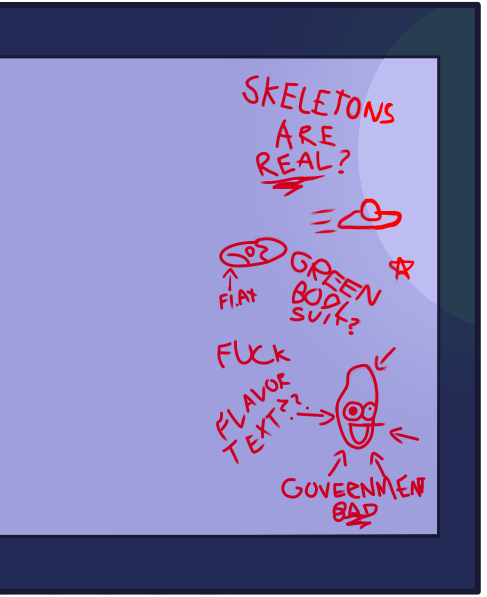 SKELETONS
ARE
REAL?
FLAT
GREEN
BODY
SUIT?
FUCK
FLAVOR
TEXT??
GOVERNMENT
BAD